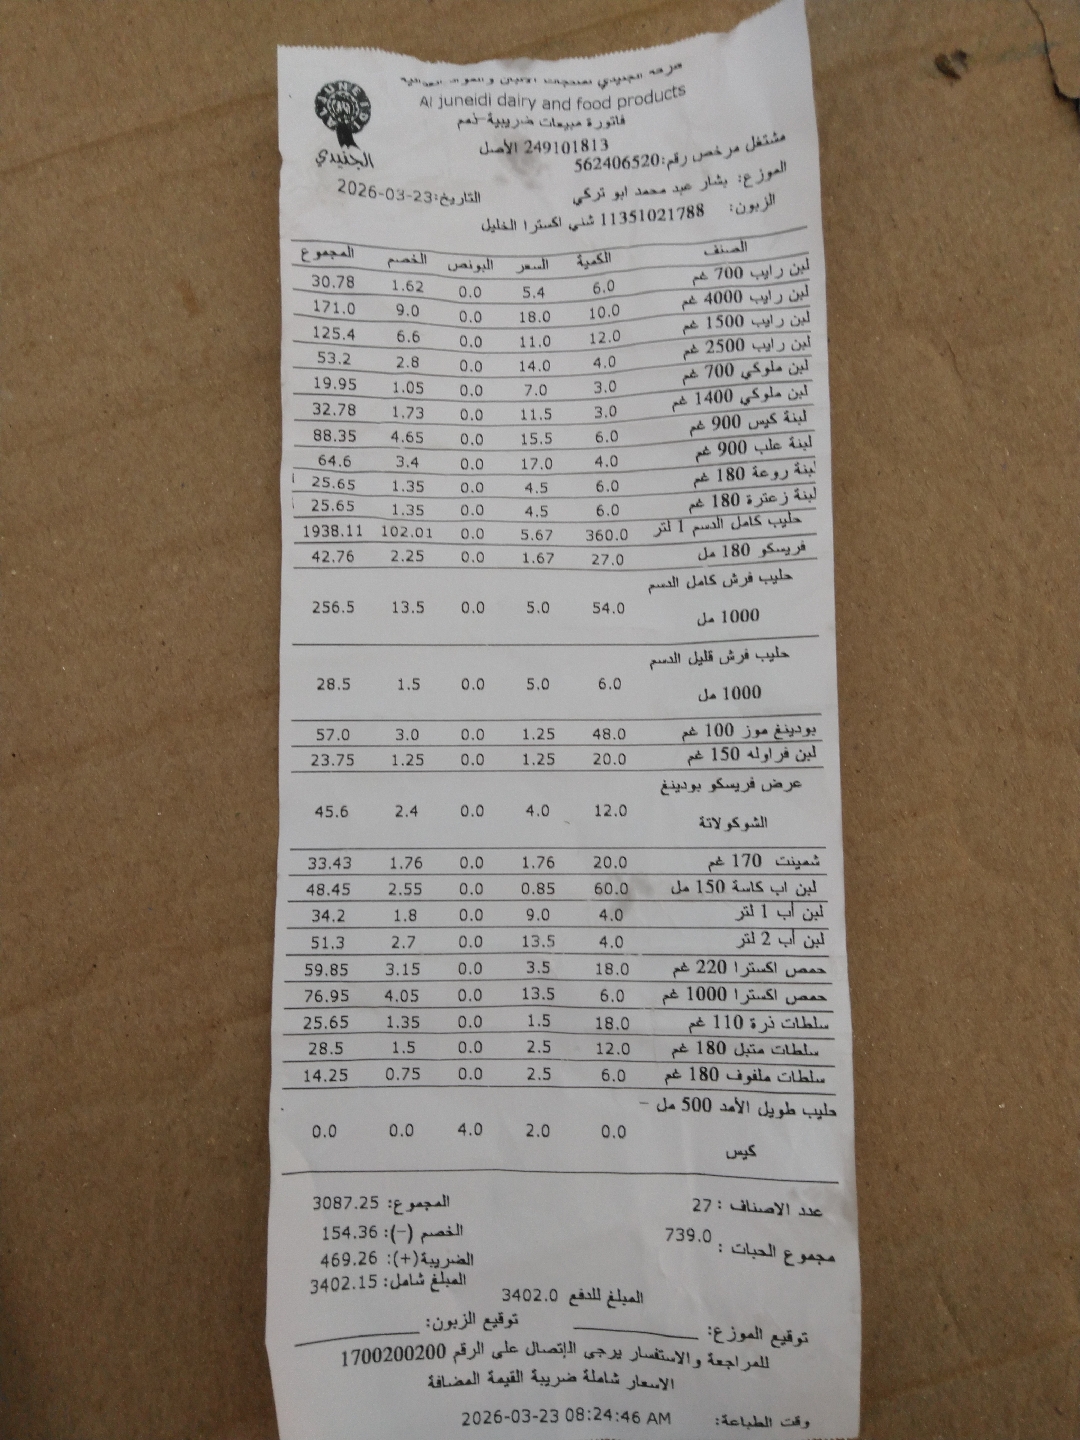 شركة الجنيدي لمنتجات الألبان والمواد الغذائية
Al juneidi dairy and food products
فاتورة مبيعات ضريبية-ذمم
249101813 الأصل
الجنيدي
مشتغل مرخص رقم:562406520
الموزع: بشار عبد محمد ابو تركي
التاريخ:2026-03-23
الزبون: 11351021788 شني اكسترا الخليل
الصنف الكمية السعر البونص الخصم المجموع
لبن رايب 700 غم 6.0 5.4 0.0 1.62 30.78
لبن رايب 4000 غم 10.0 18.0 0.0 9.0 171.0
لبن رايب 1500 غم 12.0 11.0 0.0 6.6 125.4
لبن رايب 2500 غم 4.0 14.0 0.0 2.8 53.2
لبن ملوكي 700 غم 3.0 7.0 0.0 1.05 19.95
لبن ملوكي 1400 غم 3.0 11.5 0.0 1.73 32.78
لبنة كيس 900 غم 6.0 15.5 0.0 4.65 88.35
لبنة علب 900 غم 4.0 17.0 0.0 3.4 64.6
لبنة روعة 180 غم 6.0 4.5 0.0 1.35 25.65
لبنة زعترة 180 غم 6.0 4.5 0.0 1.35 25.65
حليب كامل الدسم 1 لتر 360.0 5.67 0.0 102.01 1938.11
فريسكو 180 مل 27.0 1.67 0.0 2.25 42.76
حليب فرش كامل الدسم
1000 مل 54.0 5.0 0.0 13.5 256.5
حليب فرش قليل الدسم
1000 مل 6.0 5.0 0.0 1.5 28.5
بودينغ موز 100 غم 48.0 1.25 0.0 3.0 57.0
لبن فراوله 150 غم 20.0 1.25 0.0 1.25 23.75
عرض فريسكو بودينغ
الشوكولاتة 12.0 4.0 0.0 2.4 45.6
شمينت 170 غم 20.0 1.76 0.0 1.76 33.43
لبن اب كاسة 150 مل 60.0 0.85 0.0 2.55 48.45
لبن أب 1 لتر 4.0 9.0 0.0 1.8 34.2
لبن أب 2 لتر 4.0 13.5 0.0 2.7 51.3
حمص اكسترا 220 غم 18.0 3.5 0.0 3.15 59.85
حمص اكسترا 1000 غم 6.0 13.5 0.0 4.05 76.95
سلطات ذرة 110 غم 18.0 1.5 0.0 1.35 25.65
سلطات متبل 180 غم 12.0 2.5 0.0 1.5 28.5
سلطات ملفوف 180 غم 6.0 2.5 0.0 0.75 14.25
حليب طويل الأمد 500 مل -
كيس 0.0 2.0 4.0 0.0 0.0
عدد الاصناف : 27 المجموع: 3087.25
مجموع الحبات : 739.0 الخصم (-): 154.36
الضريبة(+): 469.26
المبلغ شامل: 3402.15
المبلغ للدفع 3402.0
توقيع الموزع: توقيع الزبون:
للمراجعة والاستفسار يرجى الإتصال على الرقم 1700200200
الاسعار شاملة ضريبة القيمة المضافة
وقت الطباعة: 2026-03-23 08:24:46 AM